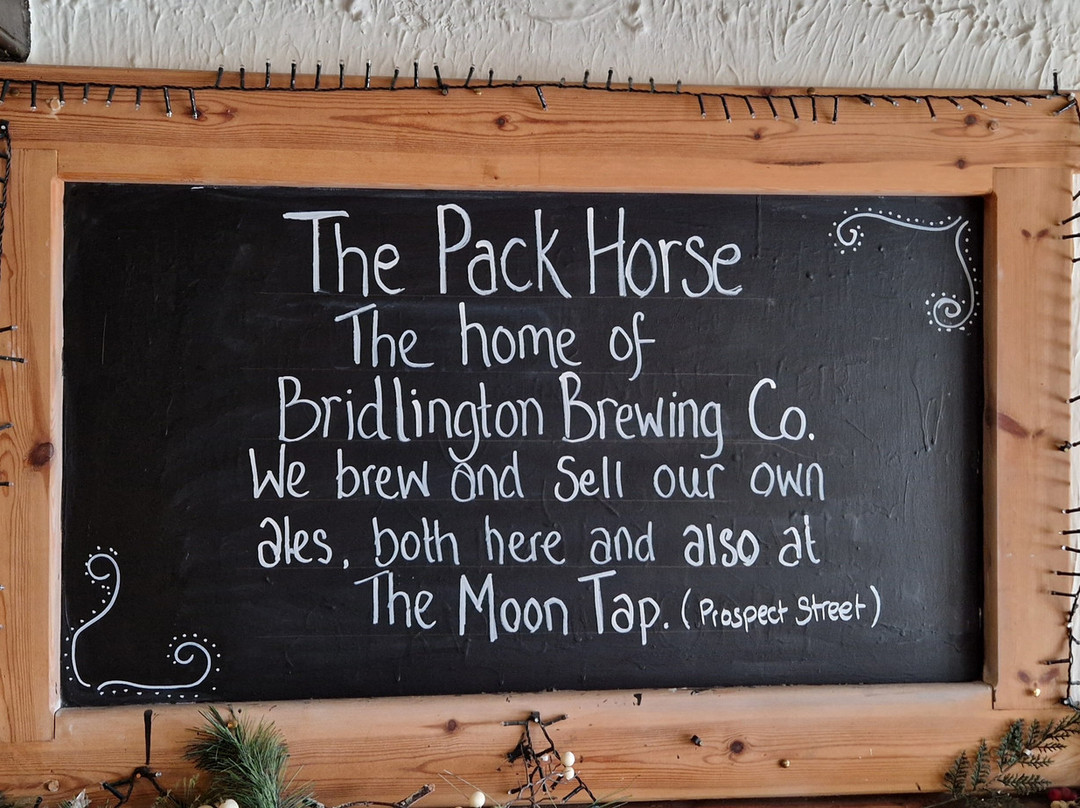 The Pack Horse
The home of
Bridlington Brewing Co.
We brew and Sell our own
ales, both here and also at
The Moon Tap. (Prospect Street)